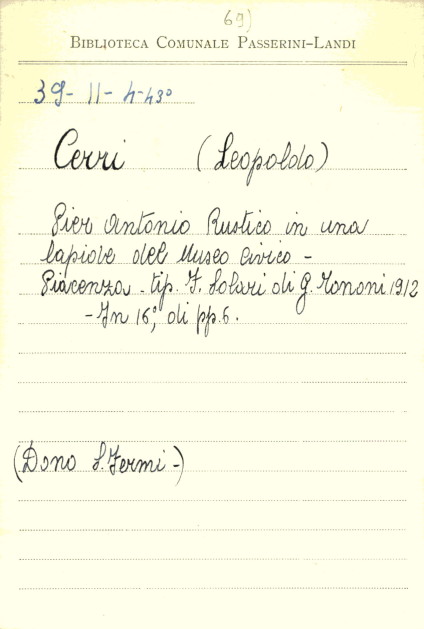 69)
BIBLIOTECA COMUNALE PASSERINI-LANDI
39-11-4-43°
Cerri (Leopoldo)
Pier Antonio Rustico in una
lapide del Museo Civico -
Piacenza - tip. F. Solari di G. Tononi 1912
- In 16°, di pp. 6.
(Dono S. Fermi -)